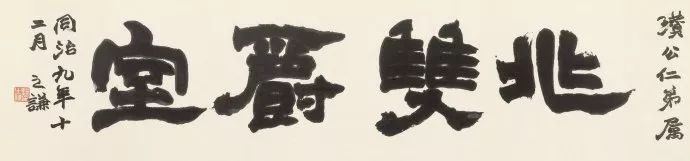 瓚公仁弟属
兆雙爵室
同治九年十
二月之謙